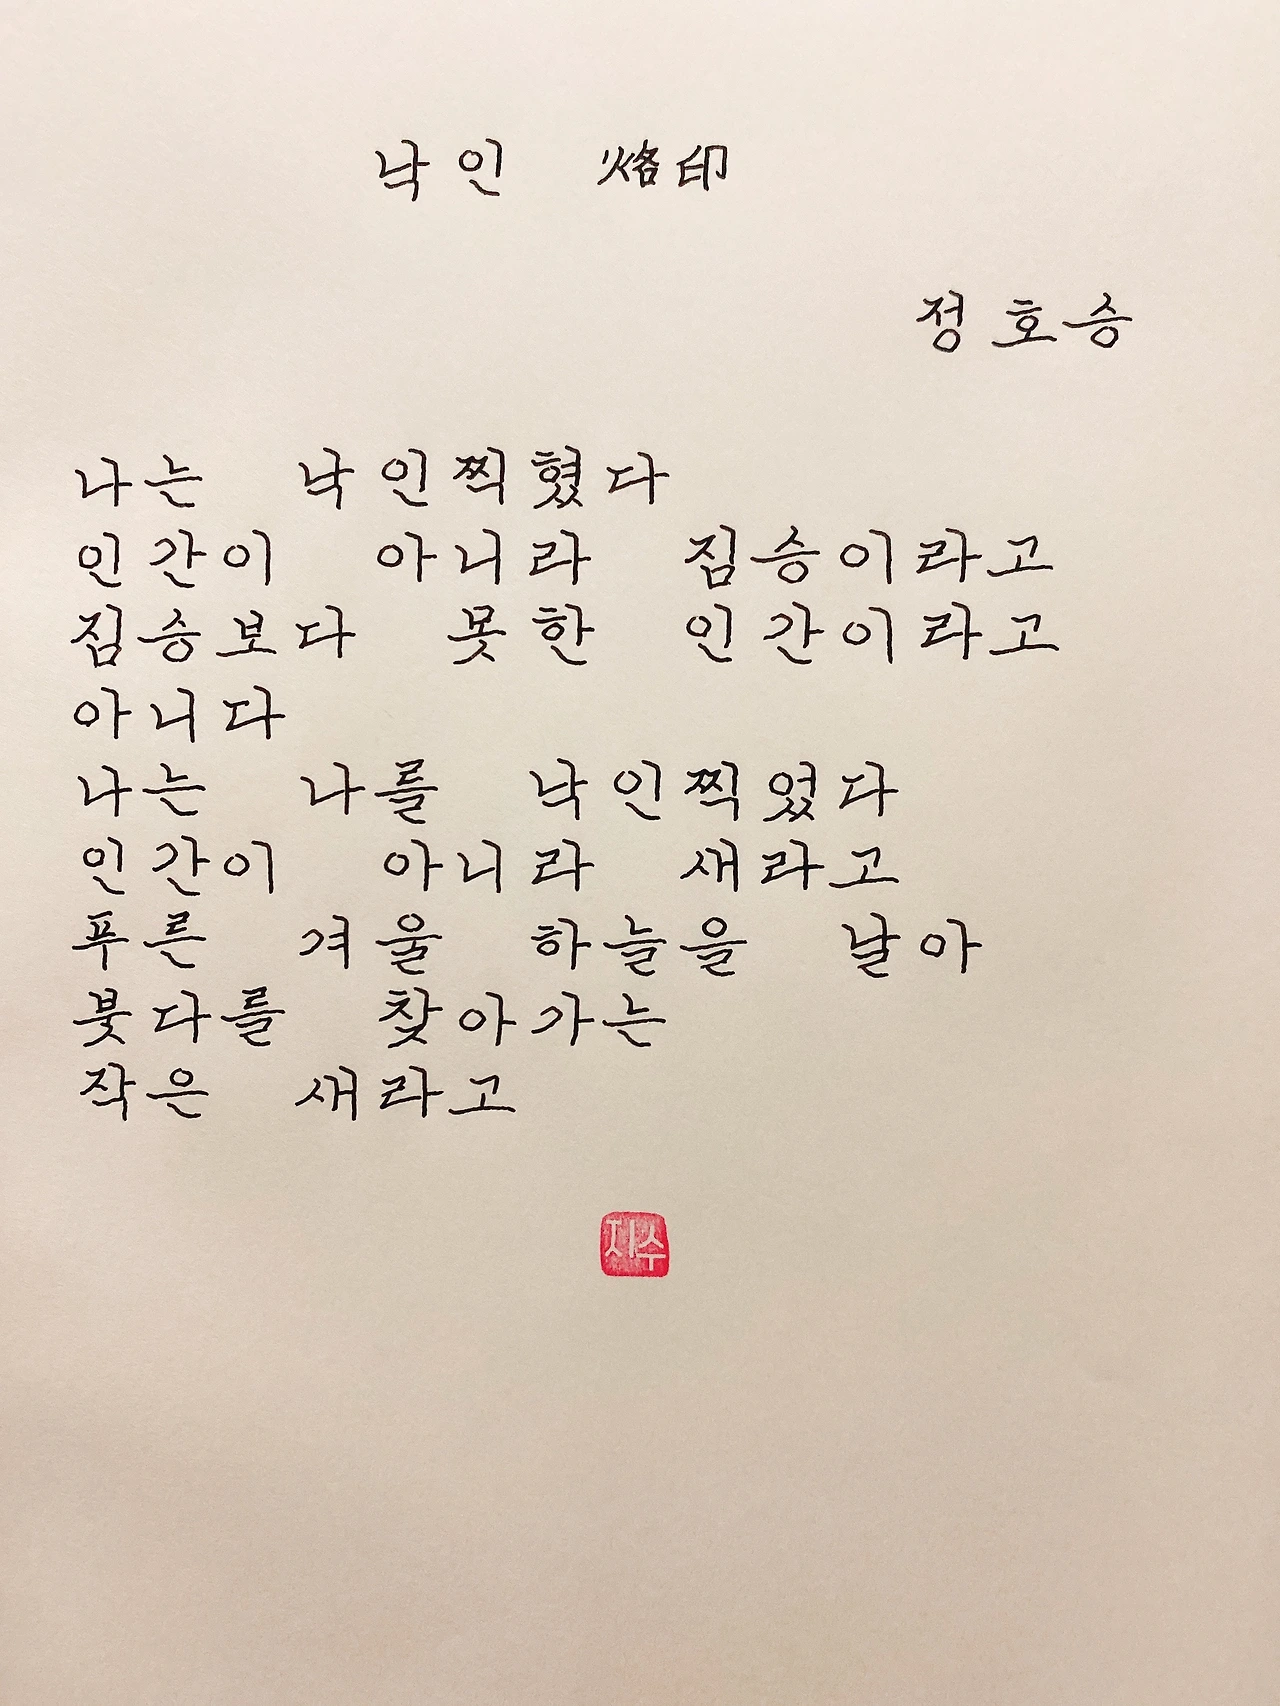 낙인 烙印
정호승
나는 낙인찍혔다
인간이 아니라 짐승이라고
짐승보다 못한 인간이라고
아니다
나는 나를 낙인찍었다
인간이 아니라 새라고
푸른 겨울 하늘을 날아
붓다를 찾아가는
작은 새라고
지수